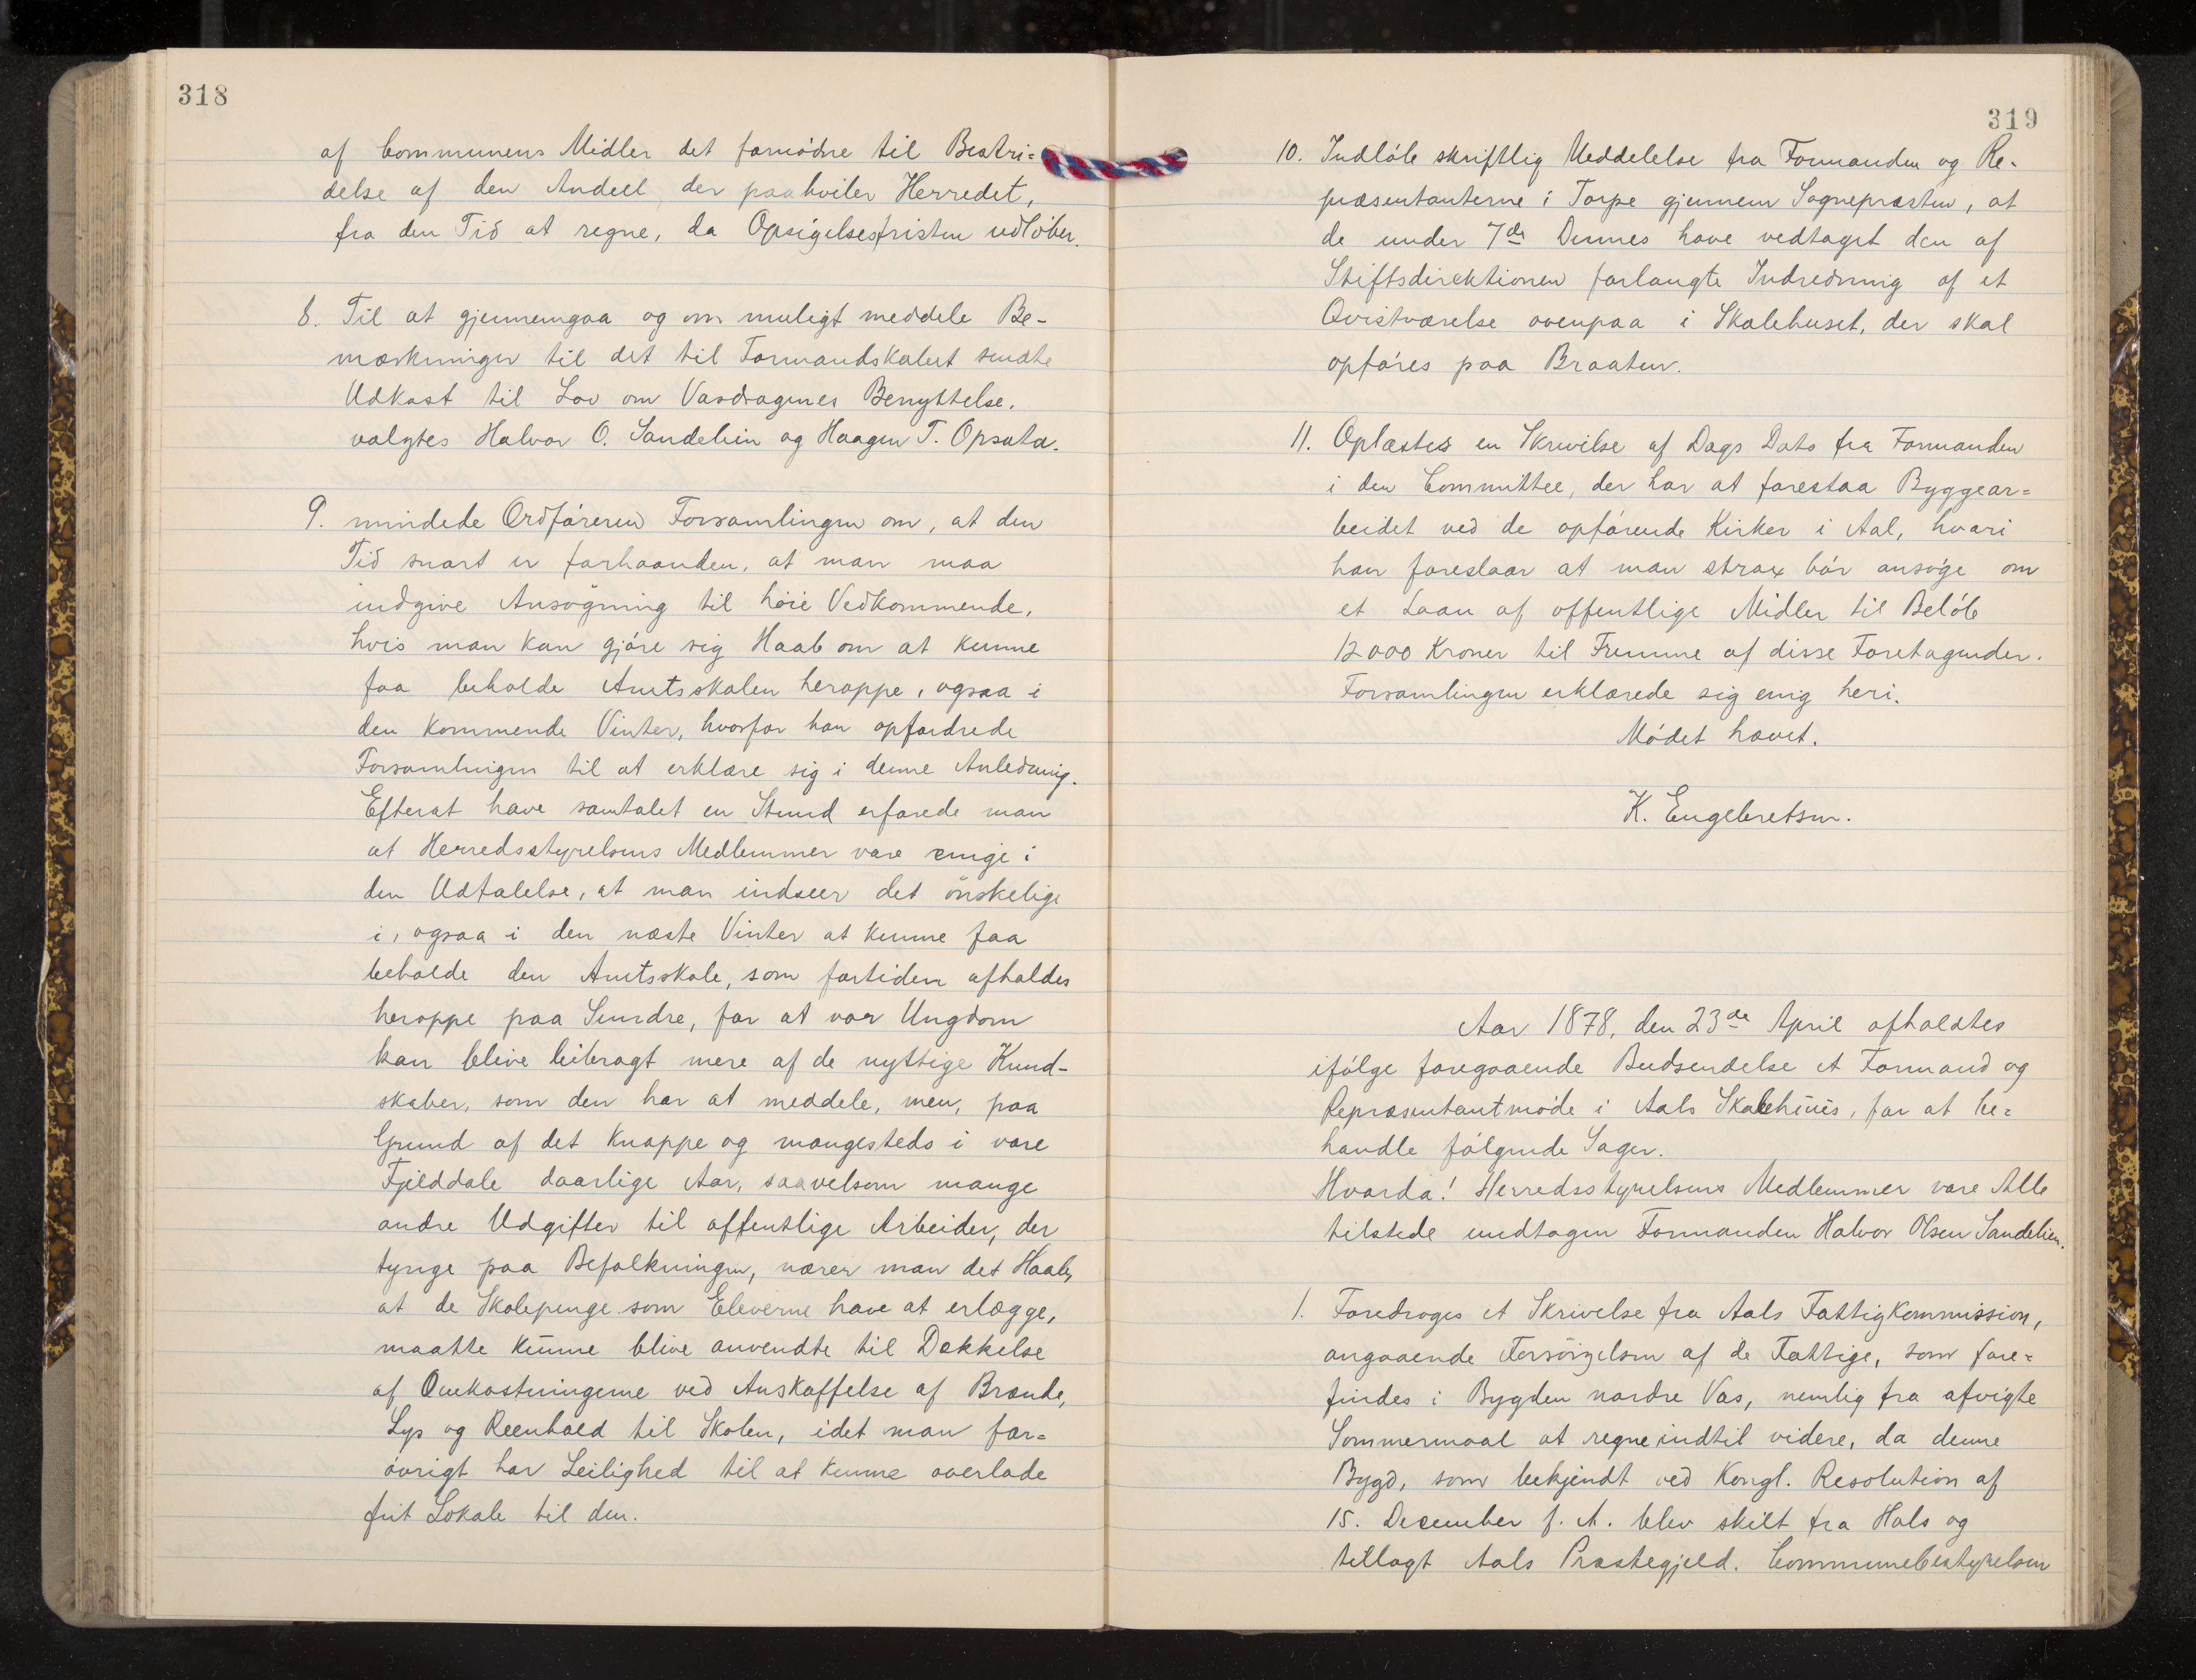 318
af Communens Midler det fornödne til Bestri=
delse af den Andeel der paahviler Herredet,
fra den Tid at regne, da Opsigelsesfristen udlöber.
8. Til at gjennemgaa og om muligt meddele Be-
mærkninger til det til Formandskabet sendte
Udkast til Lov om Vasdragenes Benyttelse.
valgtes Halvor O. Sandelien og Haagen T. Opsata.
9. mindede Ordföreren Forsamlingen om, at den
Tid snart er forhaanden, at man maa
indgive Ansögning til höie Vedkommende,
hvis man kan gjöre sig Haab om at kunne
faa beholde Amtsskolen heroppe, ogsaa i
den kommende Vinter, hvorfor han opfordrede
Forsamlingen til at erklære sig i denne Anledning.
Efterat have samtalet en Stund erfarede man
at Herredsstyrelsens Medlemmer vare enige i
den Udtalelse, at man indseer det önskelige
i, ogsaa i den næste Vinter at kunne faa
beholde den Amtsskole, som fortiden afholdes
heroppe paa Sundre, for at vor Ungdom
kan blive bibragt mere af de nyttige Kund-
skaber, som den har at meddele, men, paa
Grund af det knappe og mangesteds i vore
Fjelddale daarlige Aar, saavelsom mange
andre Udgifter til offentlige Arbeider, der
tynge paa Befolkningen, nærer man det Haab,
at de Skolepenge som Eleverne have at erlægge,
maatte kunne blive anvendte til Dækkelse
af Omkostningerne ved Anskaffelse af Brænde,
Lys og Reenhold til Skolen, idet man for=
övrigt har Leilighed til at kunne overlade
frit Lokale til den.
319
10. Indlöb skriftlig Meddelelse fra Formanden og Re-
præsentanterne i Torpe gjennem Sognepræsten, at
de under 7de Dennes have vedtaget den af
Stiftsdirektionen forlangte Indredning af et
Qvistværelse ovenpaa i Skolehuset, der skal
opföres paa Braaten.
11. Oplæstes en Skrivelse af Dags Dato fra Formanden
i den Committee, der har at forestaa Byggear=
beidet ved de opförende Kirker i Aal, hvori
han foreslaar at man strax bör ansöge om
et Laan af offentlige Midler til Belöb
12000 Kroner til Fremme af disse Foretagender.
Forsamlingen erklærede sig enig heri.
Mödet hævet.
K. Engebretsen.
Aar 1878, den 23de April afholdtes
ifölge foregaaende Budsendelse et Formand og
Repræsentantmöde i Aals Skolehuus, for at be=
handle fölgende Sager.
Hvorda! Herredsstyrelsens Medlemmer vare Alle
tilstede undtagen Formanden Halvor Olsen Sandelien.
1. Foredroges et Skrivelse fra Aals Fattigkommission,
angaaende Forsörgelsen af de Fattige, som fore=
findes i Bygden nordre Vas, nemlig fra afvigte
Sommermaal at regne indtil videre, da denne
Bygd, som bekjendt ved Kongl. Resolution af
15. December f. A. blev skilt fra Hols og
tillagt Aals Præstegjeld. Communebestyrelsen